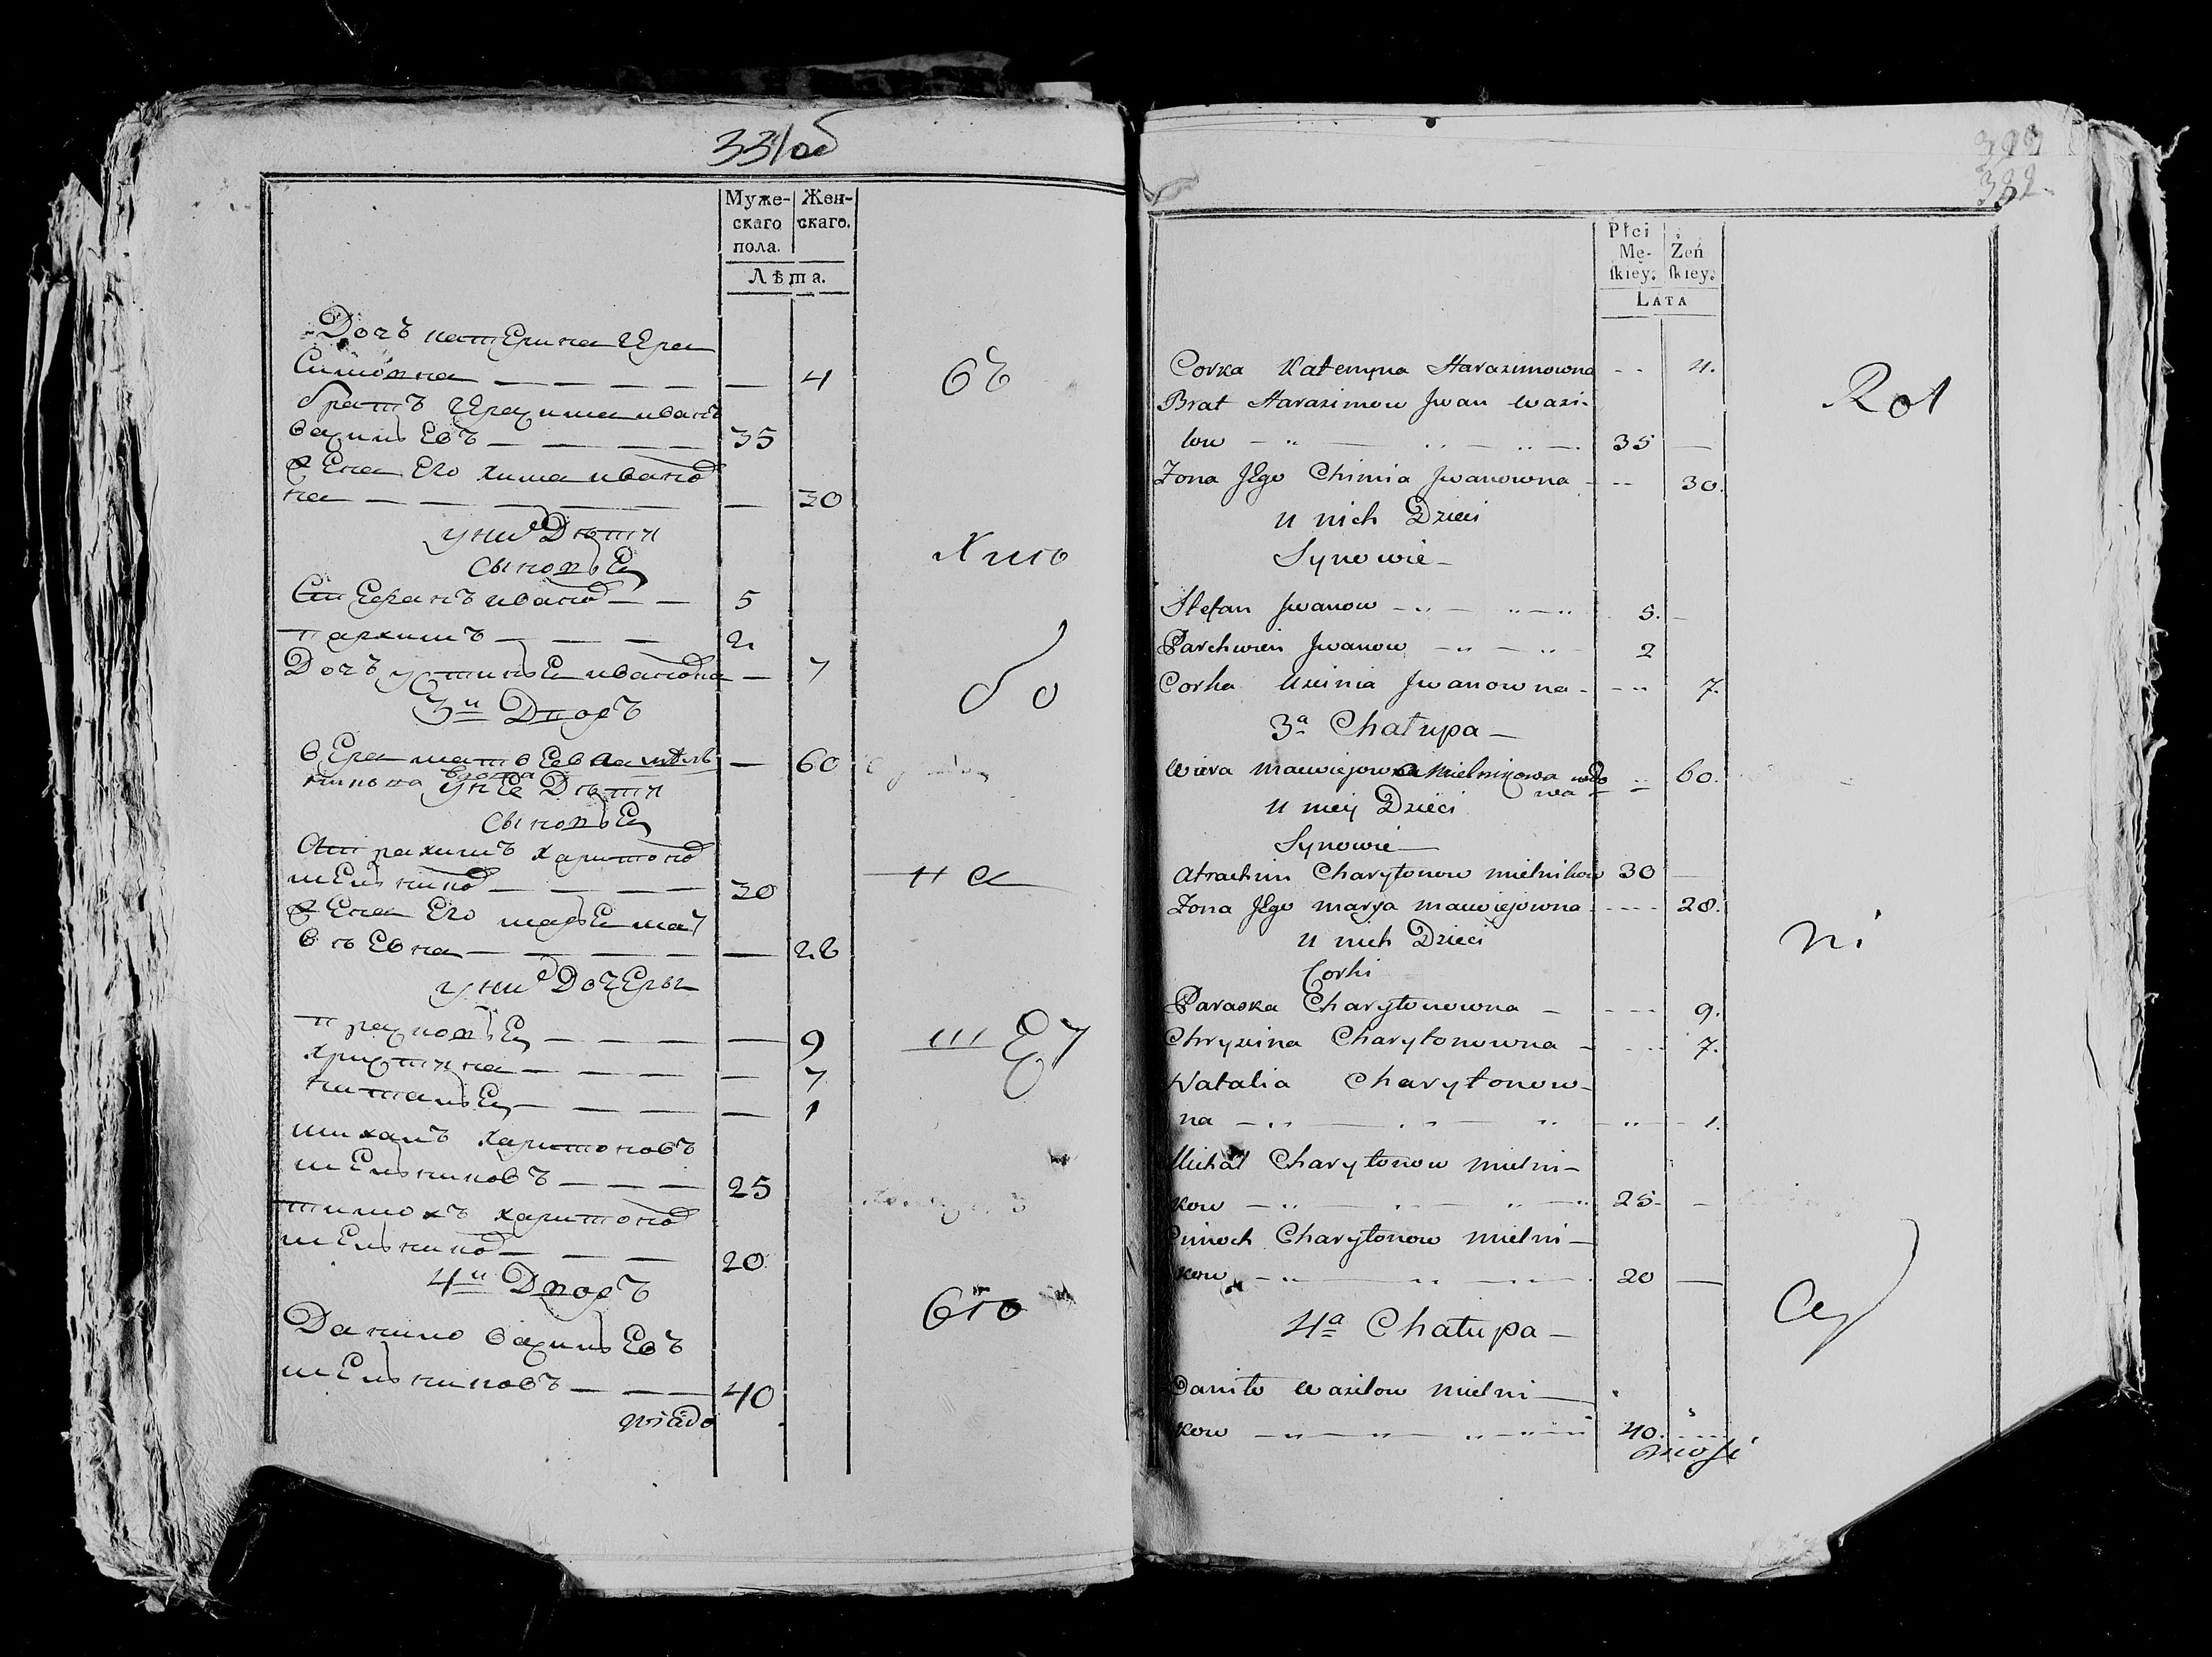 331об
Муже-
скаго
пола.
Жен-
скаго.
Лѣта.
Дочъ катерина Гера
симовна — — — — — — 4
братъ Герасима иванъ
василь евъ — — — — 35
жена его хима ивано
на — — — — — — 30
у них Дѣти
сыновье
Стефанъ иванов — — 5
пархимъ — — — 2
Дочъ устинье ивановна — 7
3й Дворъ
вера матвеевна мѣль — 60
никова вдова
у нее Дѣти
сыновье
Атрахимъ харитонов
мельников — — — — 30
жена его марье мат
вѣевна — — — — — 28
у них Дочеры
прасковье — — — — — 9
христина — — — — 7
наталье — — — — — 1
михалъ харитоновъ
мельниковъ — — — 25
тимохъ харитонов
мельников — — — 20
4й Дворъ
Данило василь евъ
мельниковъ — — — 40
бо
на
332
Płci
Mę-
ſkiey:
Zeń
ſkiey:
LATA
Corka Kateryna Harazimowna - - 4.
Brat Harazimow Jwan Wazi-
low — 35 —
Zona JEgo Chimia Jwanowna - -- 30.
u nich Dzieci
Synowie -
Stefan Jwanow — 5. -
Parchwien Jwanow — 2
Corka Uscinia Jwanowna - - 7.
3a Chałupa —
Wiera Maciejowna Mielnikowa wdo 60.
wa -
u niey Dzieci
Synowie —
Atrachim Charytonow Mielnikow 30 —
Zona JEgo Marya Maciejowna ---- 28.
u nich Dzieci
Corki
Paraska Charytonowna - --- 9.
Chryscina Charytonowna - --- 7.
Natalia Charytonow-
na — 1.
Michał Charytonow Mielni-
kow — 25 -
Cimoch Charytonow Mielni-
kow — 20 —
4a Chałupa -
Daniło Wazilow Mielni-
kow — 40.
Rol
ni